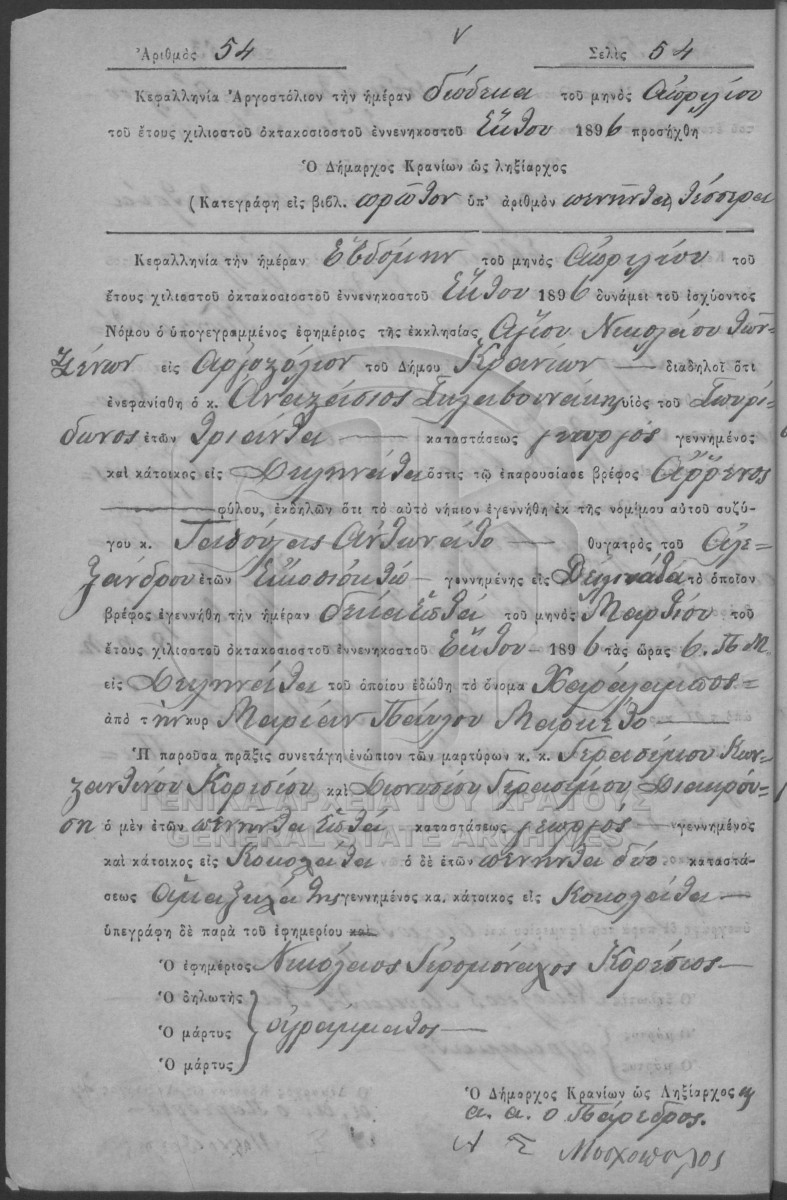 Ἀριθμὸς 54 Σελὶς 54
Κεφαλληνία Ἀργοστόλιον τὴν ἡμέραν δώδεκα τοῦ μηνὸς Ἀπριλίου
τοῦ ἔτους χιλιοστοῦ ὀκτακοσιοστοῦ ἐννενηκοστοῦ Ἕκτου 1896 προσήχθη
Ὁ Δήμαρχος Κρανίων ὡς ληξίαρχος
(Κατεγράφη εἰς βιβλ. πρῶτον ὑπ' ἀριθμὸν πενῆντα τέσσερα
Κεφαλληνία τὴν ἡμέραν Ἑβδόμην τοῦ μηνὸς Ἀπριλίου τοῦ
ἔτους χιλιοστοῦ ὀκτακοσιοστοῦ ἐννενηκοστοῦ Ἕκτου 1896 δυνάμει τοῦ ἰσχύοντος
Νόμου ὁ ὑπογεγραμμένος ἐφημέριος τῆς ἐκκλησίας Ἁγίου Νικολάου τῶν
Ξένων εἰς Ἀργοστόλιον τοῦ Δήμου Κρανίων — διαδηλοῖ ὅτι
ἐνεφανίσθη ὁ κ. Ἀναστάσιος Σκλαβουνάκης υἱὸς τοῦ Σπυρί-
δωνος ἐτῶν τριάντα — καταστάσεως γεωργὸς γεννημένος
καὶ κάτοικος εἰς Διληνάτα ὅστις τῷ ἐπαρουσίασε βρέφος ἄῤῥενος
— φύλου, ἐκδηλῶν ὅτι τὸ αὐτὸ νήπιον ἐγεννήθη ἐκ τῆς νομίμου αὐτοῦ συζύ-
γου κ. Ἀντωνάτο — θυγατρὸς τοῦ Ἀλε-
ξάνδρου ἐτῶν Εἰκοσιοκτὼ — γεννημένης εἰς Διλινάτα τὸ ὁποῖον
βρέφος ἐγεννήθη τὴν ἡμέραν δεκαεπτά τοῦ μηνὸς Μαρτίου τοῦ
ἔτους χιλιοστοῦ ὀκτακοσιοστοῦ ἐννενηκοστοῦ Ἕκτου — 1896 τὰς ὥρας 6. Π.Μ.
εἰς Διληνάτα τοῦ ὁποίου ἐδώθη τὸ ὄνομα Χαράλαμπος =
ἀπὸ τὴν κυρ Μαρίαν Παύλου Μαρκέτο —
Ἡ παροῦσα πρᾶξις συνετάγη ἐνώπιον τῶν μαρτύρων κ. κ. Γερασίμου Κων-
σταντίνου Κορεσίου καὶ Διονυσίου Γερασίμου Διακρού-
ση ὁ μὲν ἐτῶν πενῆντα ἑπτά — καταστάσεως γεωργὸς — γεννημένος
καὶ κάτοικος εἰς Κοκολάτα ὁ δὲ ἐτῶν πενῆντα δύο καταστά-
σεως ἁμαξηλάτης γεννημένος κα. κάτοικος εἰς Κοκολάτα —
ὑπεγράφη δὲ παρὰ τοῦ ἐφημερίου καὶ
Ὁ ἐφημέριος Νικόλαος Ἱερομόναχος Κορέσιος —
Ὁ δηλωτὴς
Ὁ μάρτυς ἀγράμματος —
Ὁ μάρτυς
Ὁ Δήμαρχος Κρανίων ὡς Ληξίαρχος
α. α. ὁ Πάρεδρος.
Μοσχόπουλος
ΓΕΝΙΚΑ ΑΡΧΕΙΑ ΤΟΥ ΚΡΑΤΟΥΣ
GENERAL STATE ARCHIVES